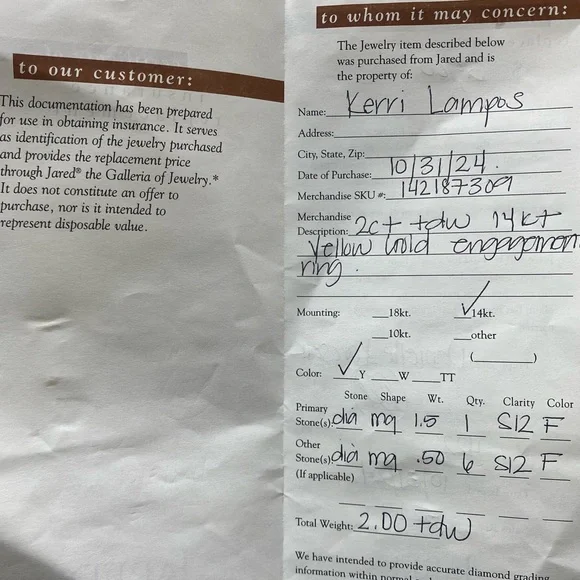 to our customer:
This documentation has been prepared
for use in obtaining insurance. It serves
as identification of the jewelry purchased
and provides the replacement price
through Jared® the Galleria of Jewelry.*
It does not constitute an offer to
purchase, nor is it intended to
represent disposable value.
to whom it may concern:
The Jewelry item described below
was purchased from Jared and is
the property of:
Name: Kerri Lampos
Address:
City, State, Zip:
Date of Purchase: 10/31/24.
Merchandise SKU #: 142187309
Merchandise
Description: 2ct tdw 14kt
Yellow Gold engagement
ring.
Mounting: __18kt. ✓14kt.
__10kt. __other
(________)
Color: ✓ Y __W __TT
Stone Shape Wt. Qty. Clarity Color
Primary
Stone(s): dia mq 1.5 1 SI2 F
Other
Stone(s): dia mq .50 6 SI2 F
(If applicable)
Total Weight: 2.00 tdw
We have intended to provide accurate diamond grading
information within normal